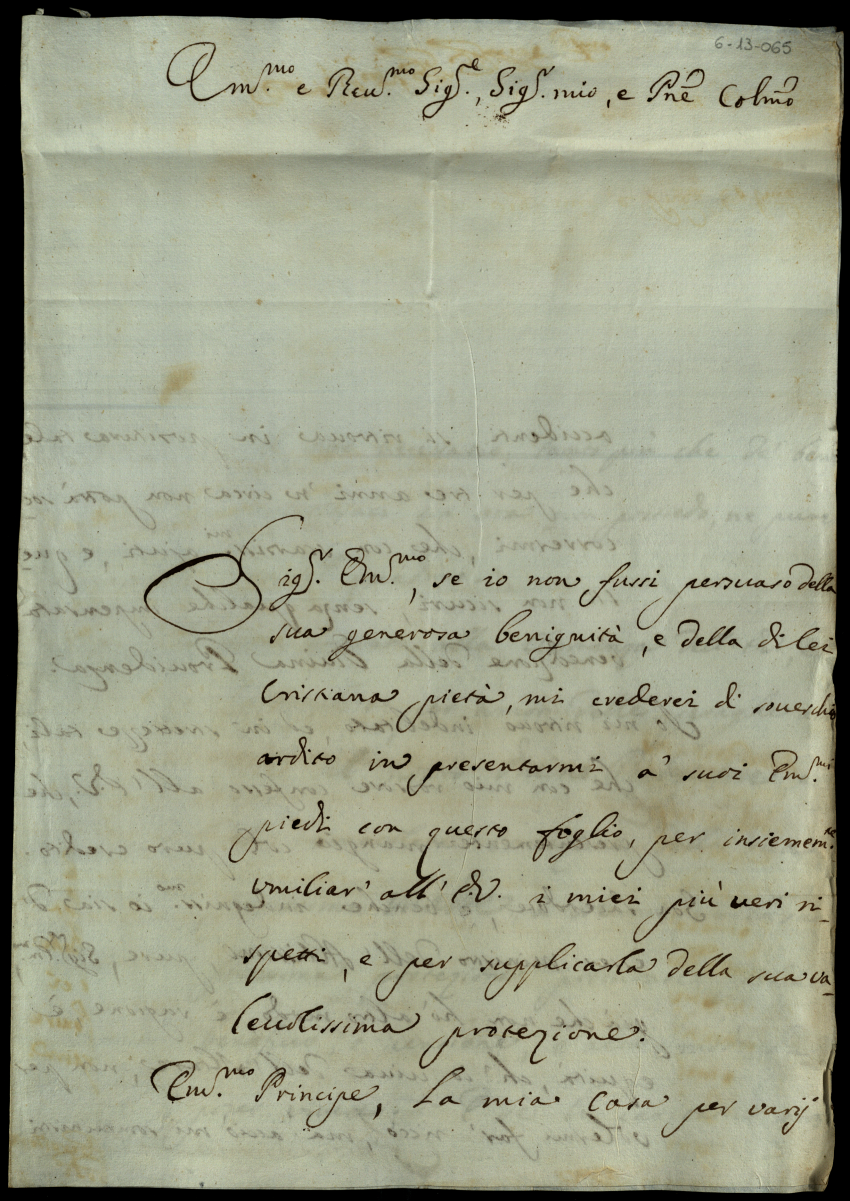 6-13-065
Em.mo e Reu.mo Sig.e, Sig.r mio, e Pne Colmo
Sig.r Em.mo, se io non fussi persuaso della
sua generosa benignità, e della di lei
Cristiana pietà, mi crederei di souerchio
ardito in presentarmi a' suoi Em.mi
piedi con questo foglio, per insiemem.te
vmiliar' all' E.V. i miei più ueri ri-
spetti, e per supplicarla della sua va-
leuolissima protezione.
Em.mo Principe, La mia Casa per varij